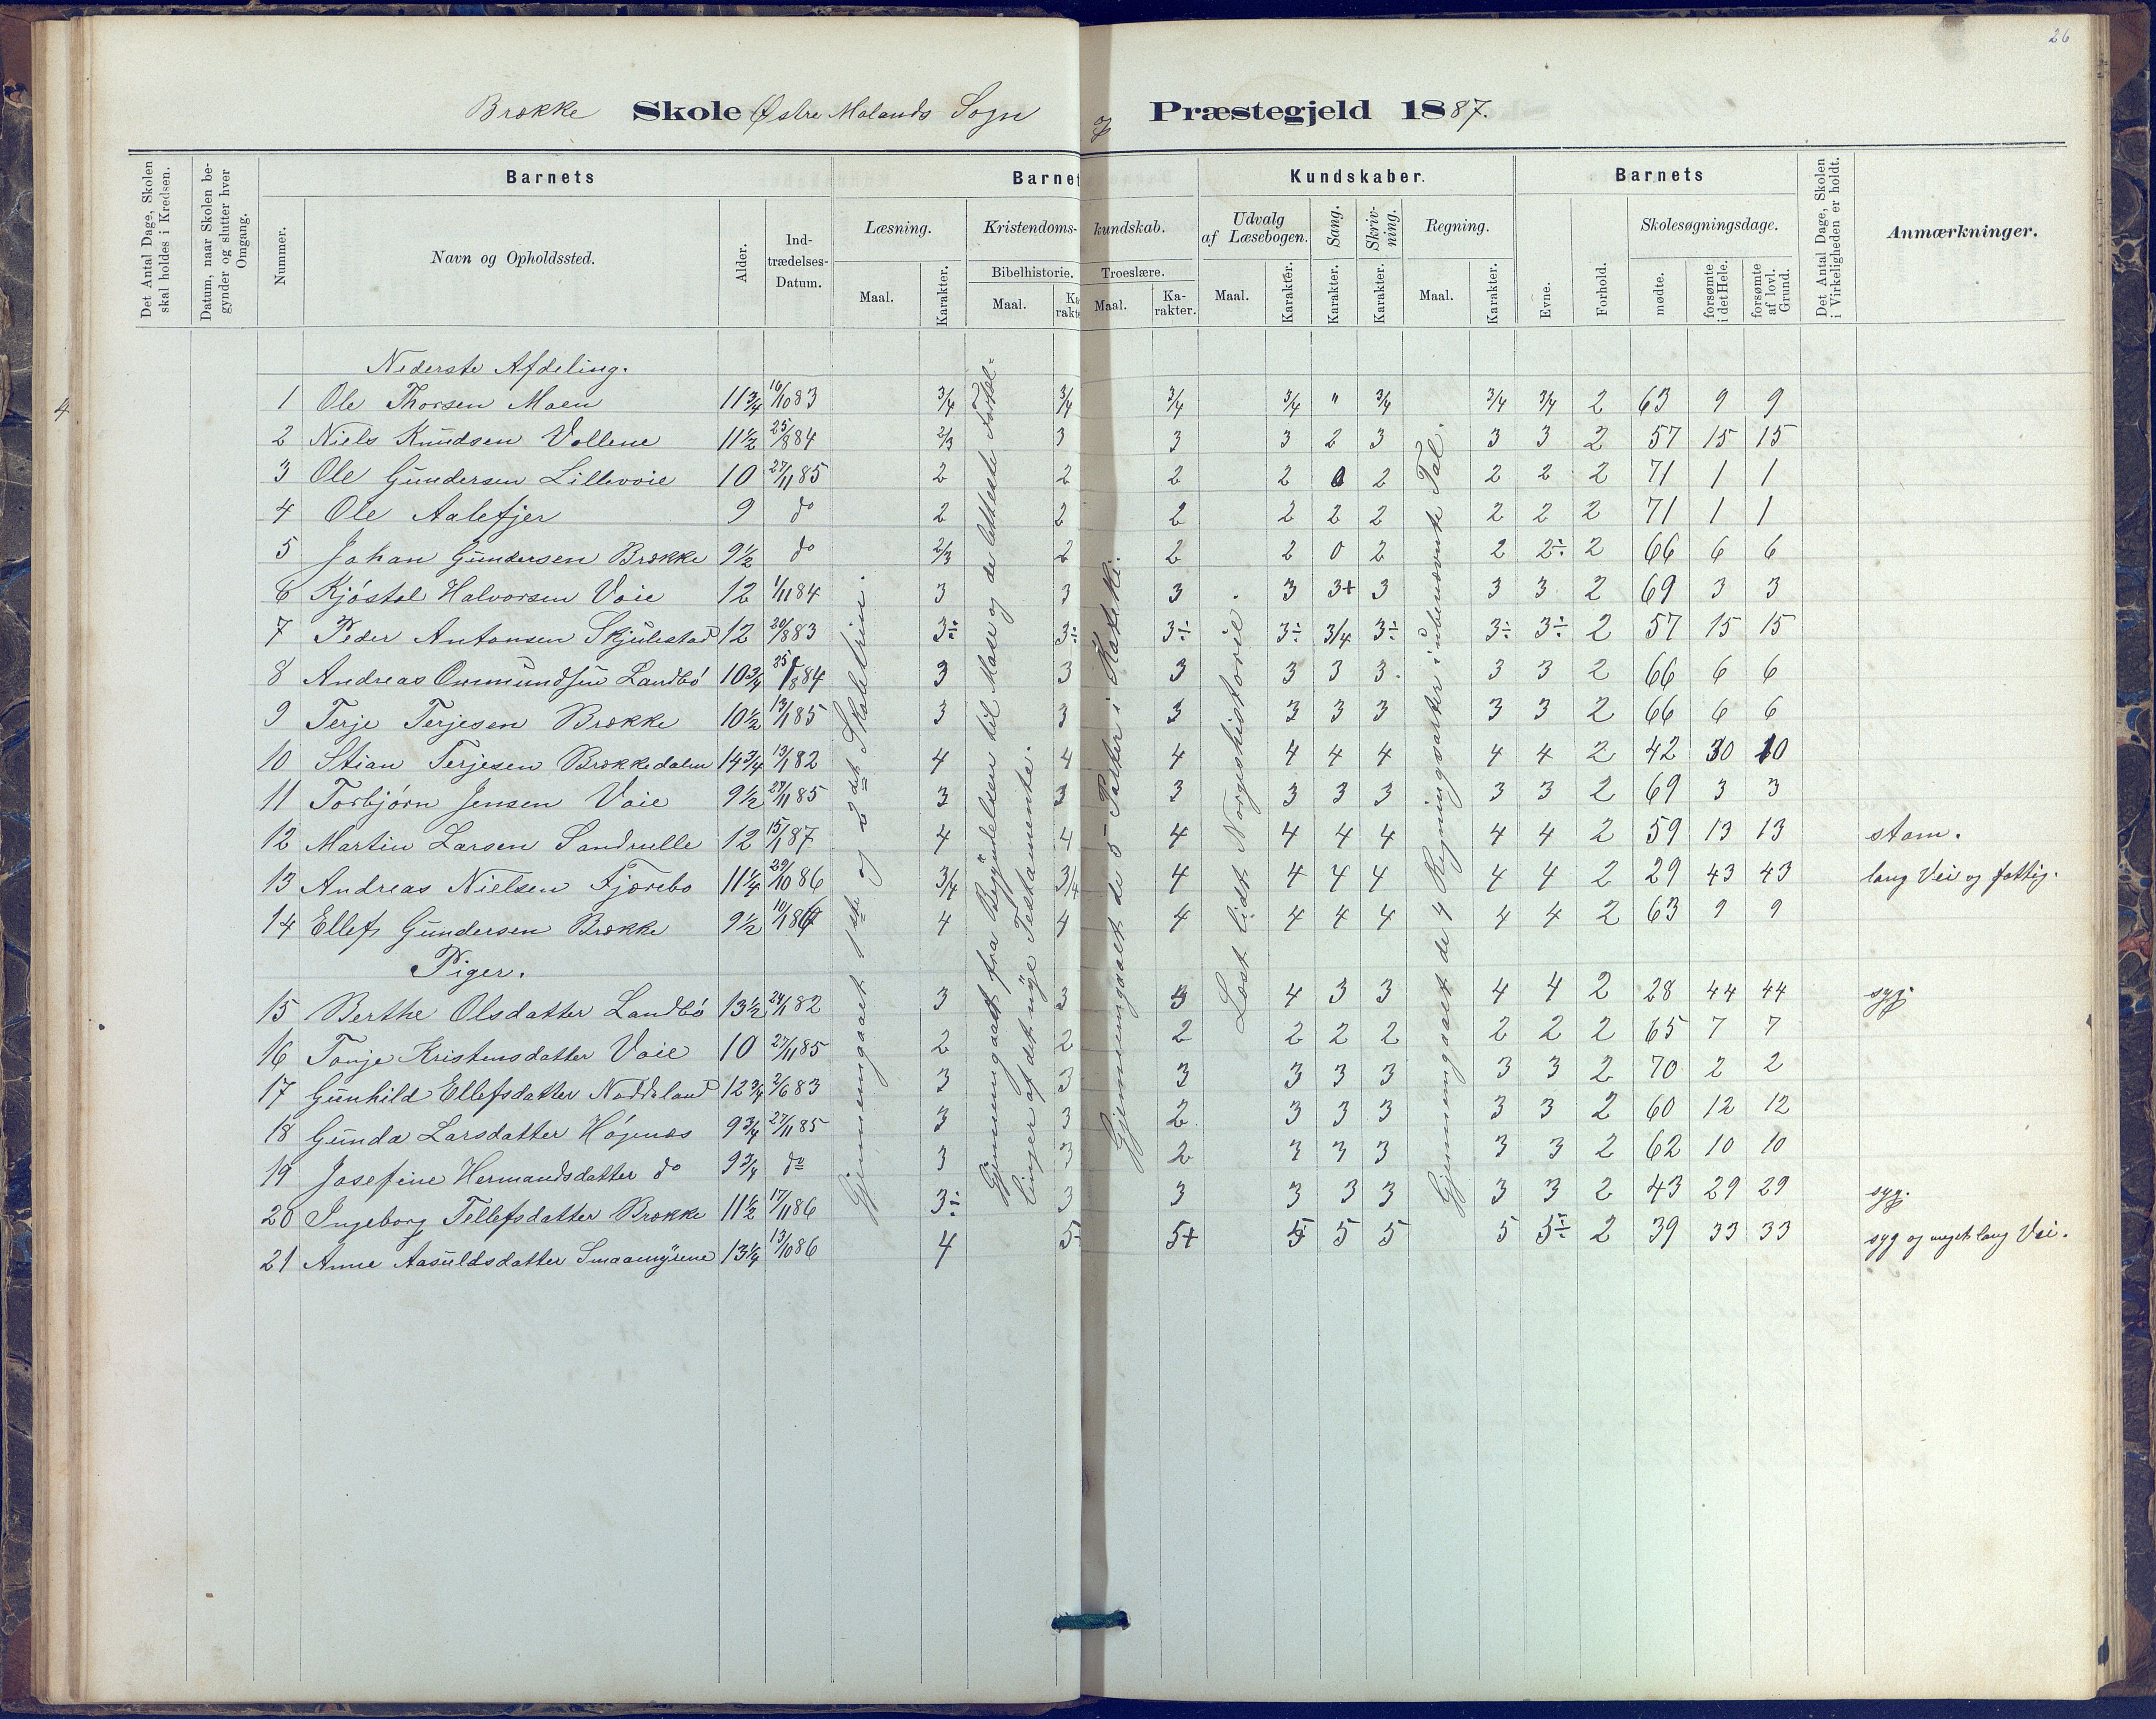 26
Brække Skole Østre Molands Sogn & Præstegjeld 1887.
Det Antal Dage, Skolen skal holdes i Kredsen.
Datum, naar Skolen begynder og slutter hver Omgang.
Barnets
Nummer.
Navn og Opholdssted.
Alder.
Indtrædelses-Datum.
Barnets Kundskaber.
Læsning.
Maal.
Karakter.
Kristendomskundskab.
Bibelhistorie.
Maal.
Karakter.
Troeslære.
Maal.
Karakter.
Udvalg af Læsebogen.
Maal.
Karakter.
Sang.
Karakter.
Skrivning.
Karakter.
Regning.
Maal.
Karakter.
Barnets
Evne.
Forhold.
Skolesøgningsdage.
mødte.
forsømte i det Hele.
forsømte af lovl. Grund.
Det Antal Dage, Skolen i Virkeligheden er holdt.
Anmærkninger.
Nederste Afdeling.
1 Ole Thorsen Moen 11 3/4 16/10 83 3/4 3/4 3/4 3/4 " 3/4 3/4 3/4 2 63 9 9
2 Niels Knudsen Vollene 11 1/2 25/8 84 2/3 3 3 3 2 3 3 3 2 57 15 15
3 Ole Gundersen Lillevoie 10 27/11 85 2 2 2 2 0 2 2 2 2 71 1 1
4 Ole Aalefjer 9 do 2 2 2 2 2 2 2 2 2 71 1 1
5 Johan Gundersen Brække 9 1/2 do 2/3 2 2 2 0 2 2 2÷ 2 66 6 6
6 Kjøstol Halvorsen Voie 12 1/11 84 3 3 3 3 3+ 3 3 3 2 69 3 3
7 Peder Antonsen Skjulestad 12 20/8 83 3÷ 3÷ 3÷ 3÷ 3/4 3÷ 3÷ 3÷ 2 57 15 15
8 Andreas Ommundsen Landbö 10 3/4 25/8 84 3 3 3 3 3 3 3 3 2 66 6 6
9 Terje Terjesen Brække 10 1/2 13/1 85 3 3 3 3 3 3 3 3 2 66 6 6
10 Stian Terjesen Brækkedalen 14 3/4 13/1 82 4 4 4 4 4 4 4 4 2 42 30 10
11 Torbjørn Jensen Voie 9 1/2 27/11 85 3 3 3 3 3 3 3 3 2 69 3 3
12 Martin Larsen Sandrulle 12 15/1 87 4 4 4 4 4 4 4 4 2 59 13 13 stam.
13 Andreas Nielsen Fjærebo 11 1/4 29/10 86 3/4 3/4 4 4 4 4 4 4 2 29 43 43 lang Vei og fattig.
14 Ellef Gundersen Brække 9 1/2 10/1 86 4 4 4 4 4 4 4 4 2 63 9 9
Piger.
15 Berthe Olsdatter Landbö 13 1/2 24/1 82 3 3 3 4 3 3 4 4 2 28 44 44 syg.
16 Tonje Kristensdatter Voie 10 27/11 85 2 2 2 2 2 2 2 2 2 65 7 7
17 Gunhild Ellefsdatter Naddeland 12 3/4 2/6 83 3 3 3 3 3 3 3 3 2 70 2 2
18 Gunda Larsdatter Högenæs 9 3/4 27/11 85 3 3 2 3 3 3 3 3 2 60 12 12
19 Josefine Hermandsdatter do 9 3/4 do 3 3 2 3 3 3 3 3 2 62 10 10
20 Ingeborg Tellefsdatter Brække 11 1/2 17/11 86 3÷ 3 3 3 3 3 3 3 2 43 29 29 syg.
21 Anne Aasuldsdatter Smaamyrene 13 1/4 13/10 86 4 5+ 5+ 5 5 5 5 5÷ 2 39 33 33 syg og meget lang Vei.
Gjennemgaaet 1ste og 2det Skoletrin.
Gjennemgaaet fra Begyndelsen til Mose og de letteste Fortællinger af det nye Testamente.
Gjennemgaaet de 5 Parter i Kateki.
Læst lidt Norgeshistorie.
Gjennemgaaet de 4 Regningsarter i ubenævnte Tal.
4